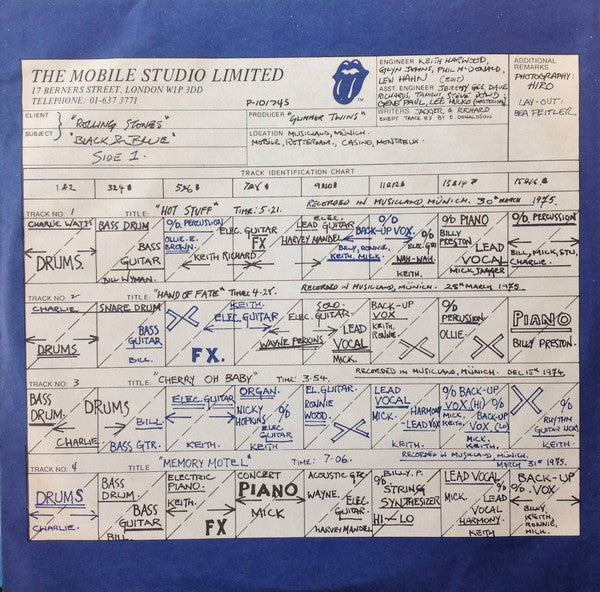 THE MOBILE STUDIO LIMITED
17 BERNERS STREET, LONDON W1P 3DD
TELEPHONE: 01-637 3771
P-101745
TM
ENGINEER KEITH HARWOOD,
GLYN JOHNS, PHIL McDONALD,
LEW HAHN (EDIT)
ASST. ENGINEER JEREMY GEE, DAVE
RICHARDS, TAPANI, STEVE DOWD;
GENE PAUL, LEE HULKO (MASTERING)
WRITERS JAGGER & RICHARD
EXCEPT TRACK #3 BY E. DONALDSON
ADDITIONAL
REMARKS
PHOTOGRAPHY:
HIRO
LAY-OUT:
BEA FEITLER.
CLIENT "ROLLING STONES"
SUBJECT "BLACK & BLUE"
SIDE 1.
PRODUCER "GLIMMER TWINS"
LOCATION MUSICLAND, MÜNICH.
MOBILE, ROTTERDAM, CASINO, MONTREUX
TRACK IDENTIFICATION CHART
1&2 3&4 5&6 7&8 9&10 11&12 13&14 15&16
RECORDED IN MUSICLAND, MÜNICH. 30th MARCH 1975.
TRACK NO. 1 TITLE: "HOT STUFF" TIME: 5.21.
CHARLIE WATTS
DRUMS.
BASS DRUM
BASS
GUITAR
BILL WYMAN.
% PERCUSSION
OLLIE. E.
BROWN.
ELEC GUITAR
KEITH RICHARD
FX
ELEC.
LEAD GUITAR
HARVEY MANDEL
%
BACK-UP VOX.
BILLY, RONNIE,
KEITH, MICK
% ELEC. GTR
WAH-WAH
KEITH.
% PIANO
BILLY
PRESTON
LEAD
VOCAL
MICK JAGGER
% PERCUSSION
BILL, MICK, STU,
CHARLIE.
RECORDED IN MUSICLAND, MÜNICH. 25th MARCH 1975.
TRACK NO. 2 TITLE: "HAND OF FATE" TIME: 4.28.
CHARLIE
DRUMS
SNARE DRUM
BASS
GUITAR
BILL.
FX.
KEITH.
ELEC. GUITAR
SOLO.
ELEC. GUITAR.
WAYNE PERKINS
LEAD
VOCAL
MICK.
BACK-UP
VOX
KEITH,
RONNIE.
%
PERCUSSION
OLLIE.
PIANO
BILLY PRESTON.
RECORDED IN MUSICLAND, MÜNICH. DEC. 15th 1974.
TRACK NO. 3 TITLE: "CHERRY OH BABY" TIME: 3.54.
BASS
DRUM.
DRUMS
CHARLIE
BILL
BASS GTR.
ELEC. GUITAR
KEITH.
ORGAN.
NICKY
HOPKINS
%
ELEC
GUITAR
KEITH
EL. GUITAR
RONNIE
WOOD.
LEAD
VOCAL
MICK.
HARMONY
LEAD VOX
KEITH.
% BACK-UP
VOX. (HI) %
MICK, BACK-UP
KEITH. VOX. (LO)
MICK,
KEITH.
%
RHYTHM
KEITH.
RECORDED IN MUSICLAND, MÜNICH.
MARCH 31st 1975.
TRACK NO. 4 TITLE "MEMORY MOTEL" TIME: 7.06.
DRUMS
CHARLIE.
BASS
DRUM.
BASS
GUITAR
BILL
ELECTRIC
PIANO.
KEITH.
FX
CONCERT
PIANO
MICK
ACOUSTIC GTR.
WAYNE.
ELEC.
GUITAR.
HARVEY MANDEL
% BILLY. P.
STRING
SYNTHESIZER
HI - LO
LEAD VOCAL
MICK. %
LEAD
VOCAL
HARMONY.
KEITH
BACK-UP
% VOX.
BILLY,
KEITH,
RONNIE,
MICK.